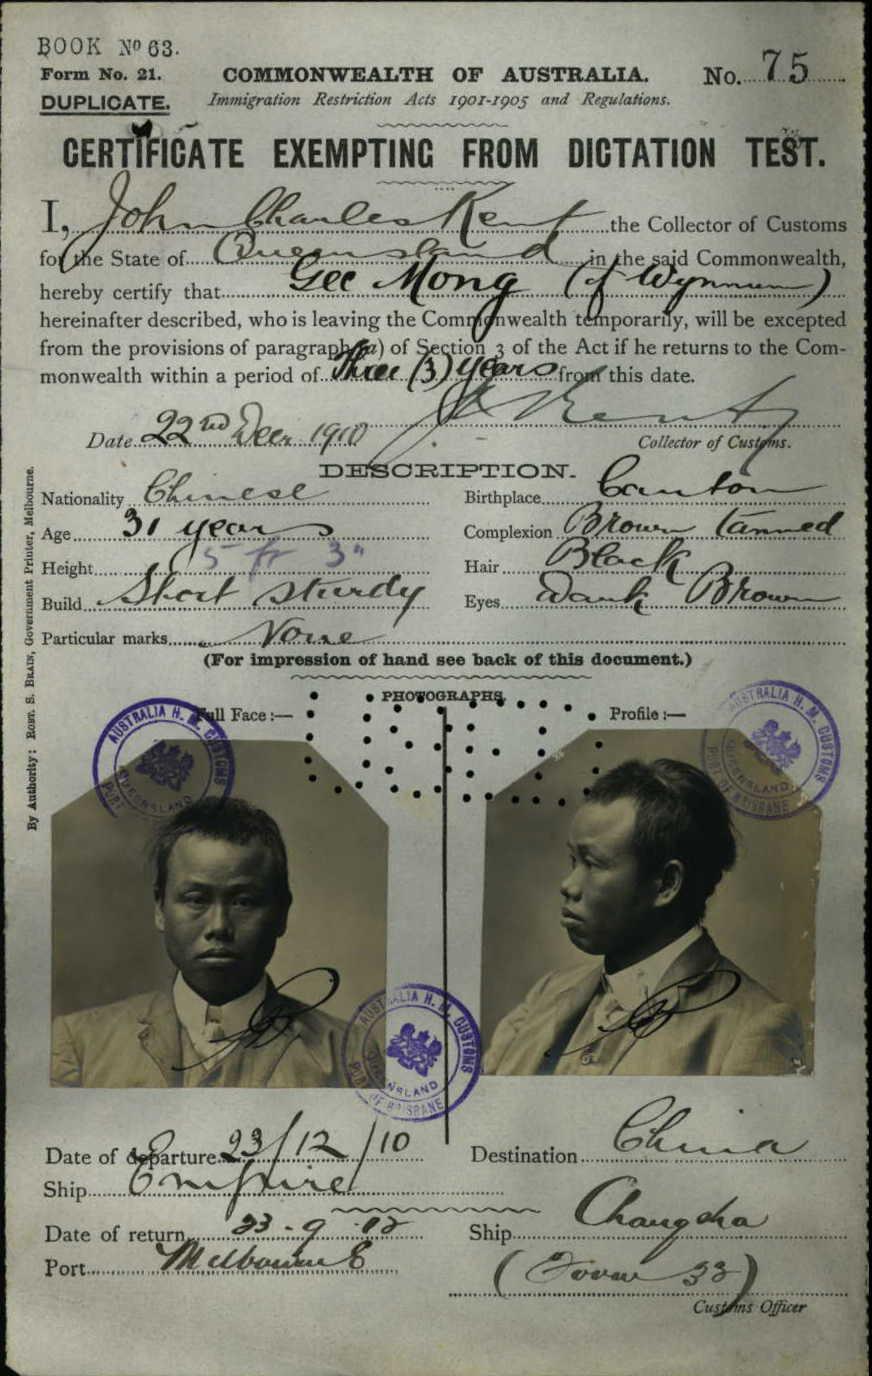 BOOK Nº 63.
Form No. 21.
DUPLICATE.
COMMONWEALTH OF AUSTRALIA.
Immigration Restriction Acts 1901-1905 and Regulations.
No. 75
CERTIFICATE EXEMPTING FROM DICTATION TEST.
I, John Charles Kent the Collector of Customs
for the State of Queensland in the said Commonwealth,
hereby certify that Gee Mong (of Wynnum)
hereinafter described, who is leaving the Commonwealth temporarily, will be excepted
from the provisions of paragraph (a) of Section 3 of the Act if he returns to the Com-
monwealth within a period of Three (3) Years from this date.
Date 22nd Decr 1910 J C Kent
Collector of Customs.
DESCRIPTION.
Nationality Chinese Birthplace Canton
Age 31 years Complexion Brown tanned
Height 5 ft 3" Hair Black
Build Short sturdy Eyes Dark Brown
Particular marks None
(For impression of hand see back of this document.)
PHOTOGRAPHS.
Full Face :— Profile :—
AUSTRALIA H. M. CUSTOMS
QUEENSLAND
PORT
AUSTRALIA H. M. CUSTOMS
QUEENSLAND
PORT OF BRISBANE
AUSTRALIA H. M. CUSTOMS
QUEENSLAND
PORT OF BRISBANE
Date of departure 23/12/10 Destination China
Ship Empire
Date of return 23-9-12 Ship Changsha
Port Melbourne
(Form 32)
Customs Officer
By Authority: ROBT. S. BRAIN, Government Printer, Melbourne.